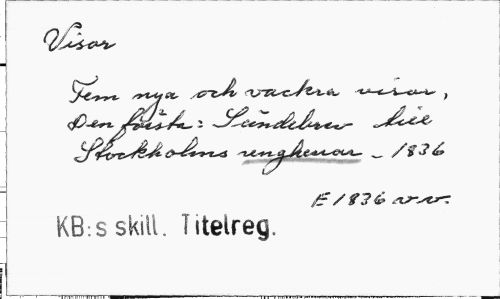 Visor
Fem nya och vackra visor,
Den första: Sändebrev till
Stockholms ungkarlar - 1836
E 1836 v.v.
KB:s skill. Titelreg.